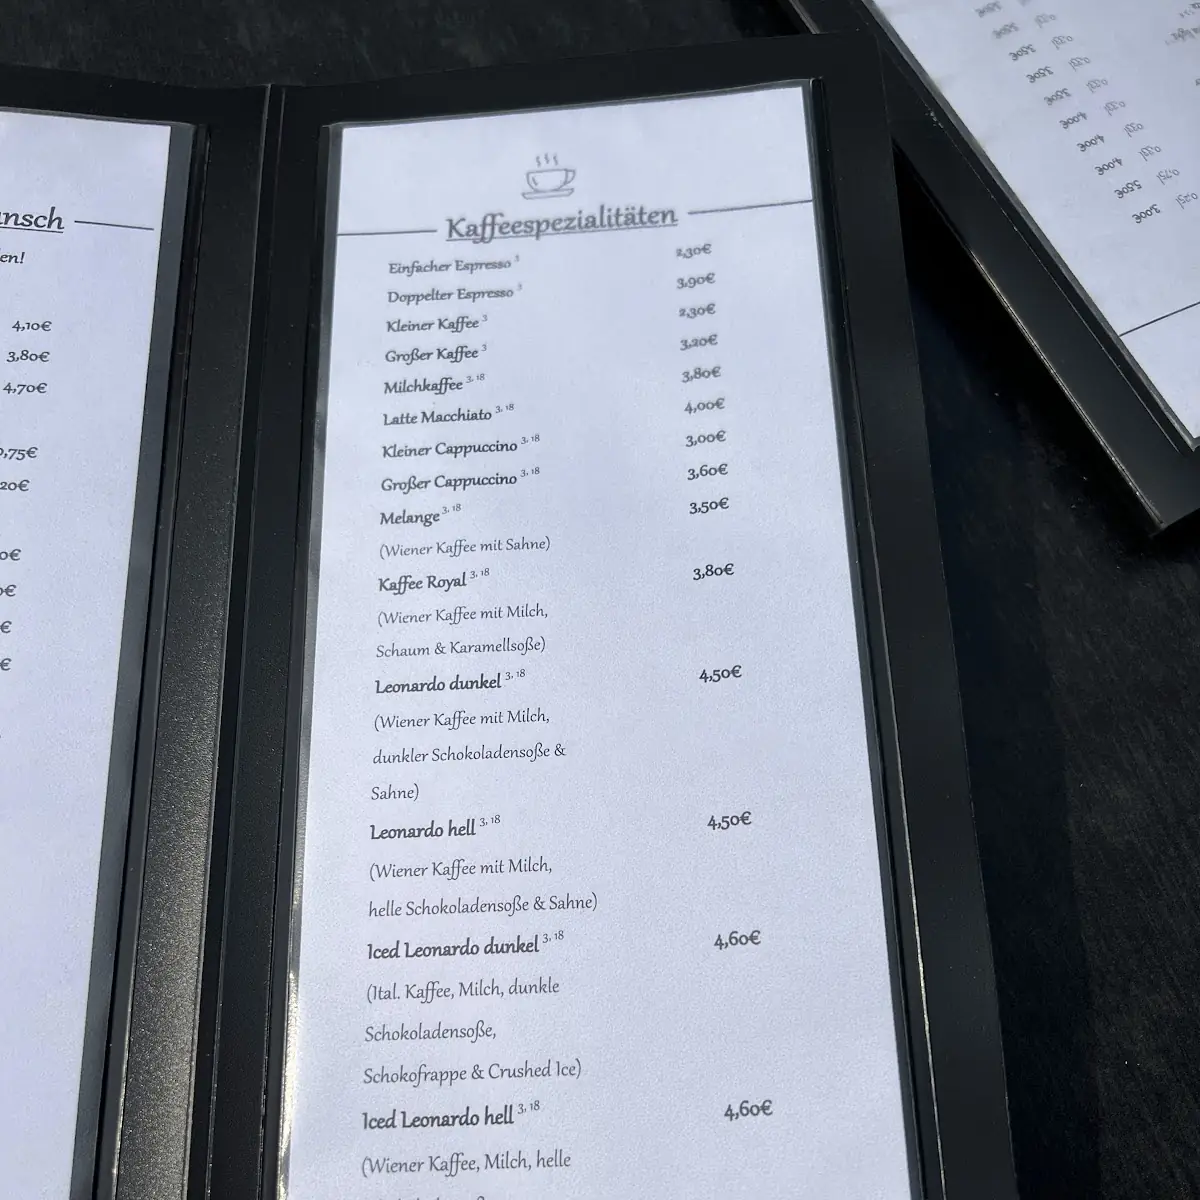 nsch
en!
4,10€
3,80€
4,70€
,75€
20€
0€
€
€
€
Kaffeespezialitäten
Einfacher Espresso ³ 2,30€
Doppelter Espresso ³ 3,90€
Kleiner Kaffee ³ 2,30€
Großer Kaffee ³ 3,20€
Milchkaffee 3, 18 3,80€
Latte Macchiato 3, 18 4,00€
Kleiner Cappuccino 3, 18 3,00€
Großer Cappuccino 3, 18 3,60€
Melange 3, 18 3,50€
(Wiener Kaffee mit Sahne)
Kaffee Royal 3, 18 3,80€
(Wiener Kaffee mit Milch,
Schaum & Karamellsoße)
Leonardo dunkel 3, 18 4,50€
(Wiener Kaffee mit Milch,
dunkler Schokoladensoße &
Sahne)
Leonardo hell 3, 18 4,50€
(Wiener Kaffee mit Milch,
helle Schokoladensoße & Sahne)
Iced Leonardo dunkel 3, 18 4,60€
(Ital. Kaffee, Milch, dunkle
Schokoladensoße,
Schokofrappe & Crushed Ice)
Iced Leonardo hell 3, 18 4,60€
(Wiener Kaffee, Milch, helle
0,25l 3,00€
0,75l 5,50€
4,00€
4,00€
4,00€
3,50€
3,50€
3,50€